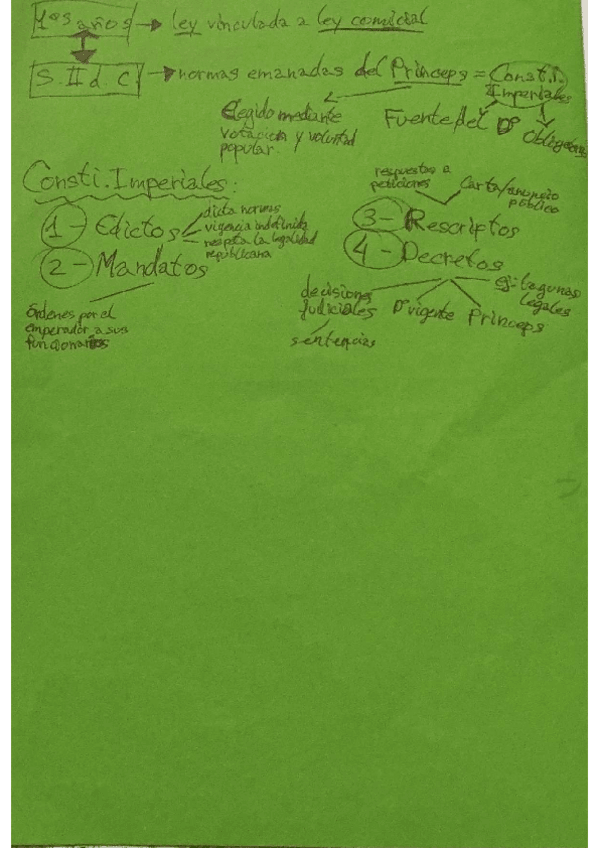 1os años → ley vinculada a ley comicial
S. II d. C. → normas emanadas del Princeps = Consti. Imperiales
Elegido mediante votación y voluntad popular.
Fuente del Dº
Consti. Imperiales:
1- Edictos
dicta normas
vigencia indefinida
respeta la legalidad republicana
2- Mandatos
órdenes por el emperador a sus funcionarios
respuestas a peticiones
Carta/anuncio público
3- Rescriptos
4- Decretos
decisiones judiciales
sentencias
Dº vigente
Princeps
ej: lagunas legales